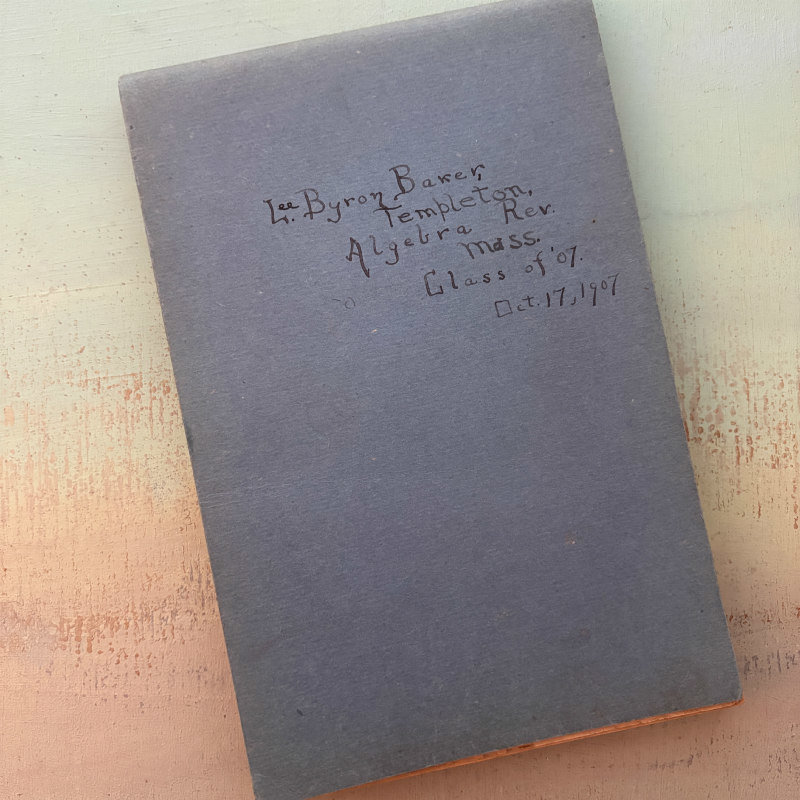 Lee Byron Baker,
Templeton,
Algebra Rev.
Mass.
Class of '07.
Oct. 17, 1907